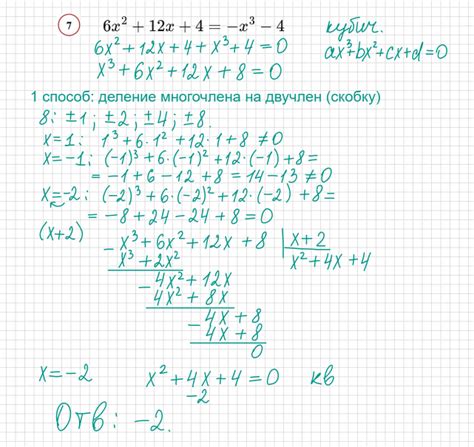 7 6x² + 12x + 4 = −x³ − 4 кубич.
6x² + 12x + 4 + x³ + 4 = 0 ax³+bx²+cx+d=0
x³ + 6x² + 12x + 8 = 0
1 способ: деление многочлена на двучлен (скобку)
8: ±1; ±2; ±4; ±8.
x=1: 1³ + 6·1² + 12·1 + 8 ≠ 0
x=−1: (−1)³ + 6·(−1)² + 12·(−1) + 8 =
= −1 + 6 − 12 + 8 = 14 − 13 ≠ 0
x=−2: (−2)³ + 6·(−2)² + 12·(−2) + 8 =
= −8 + 24 − 24 + 8 = 0
(x+2) − x³ + 6x² + 12x + 8 | x + 2
x³ + 2x² x² + 4x + 4
− 4x² + 12x
4x² + 8x
− 4x + 8
4x + 8
0
x = −2 x² + 4x + 4 = 0 кв
−2
Отв: −2.